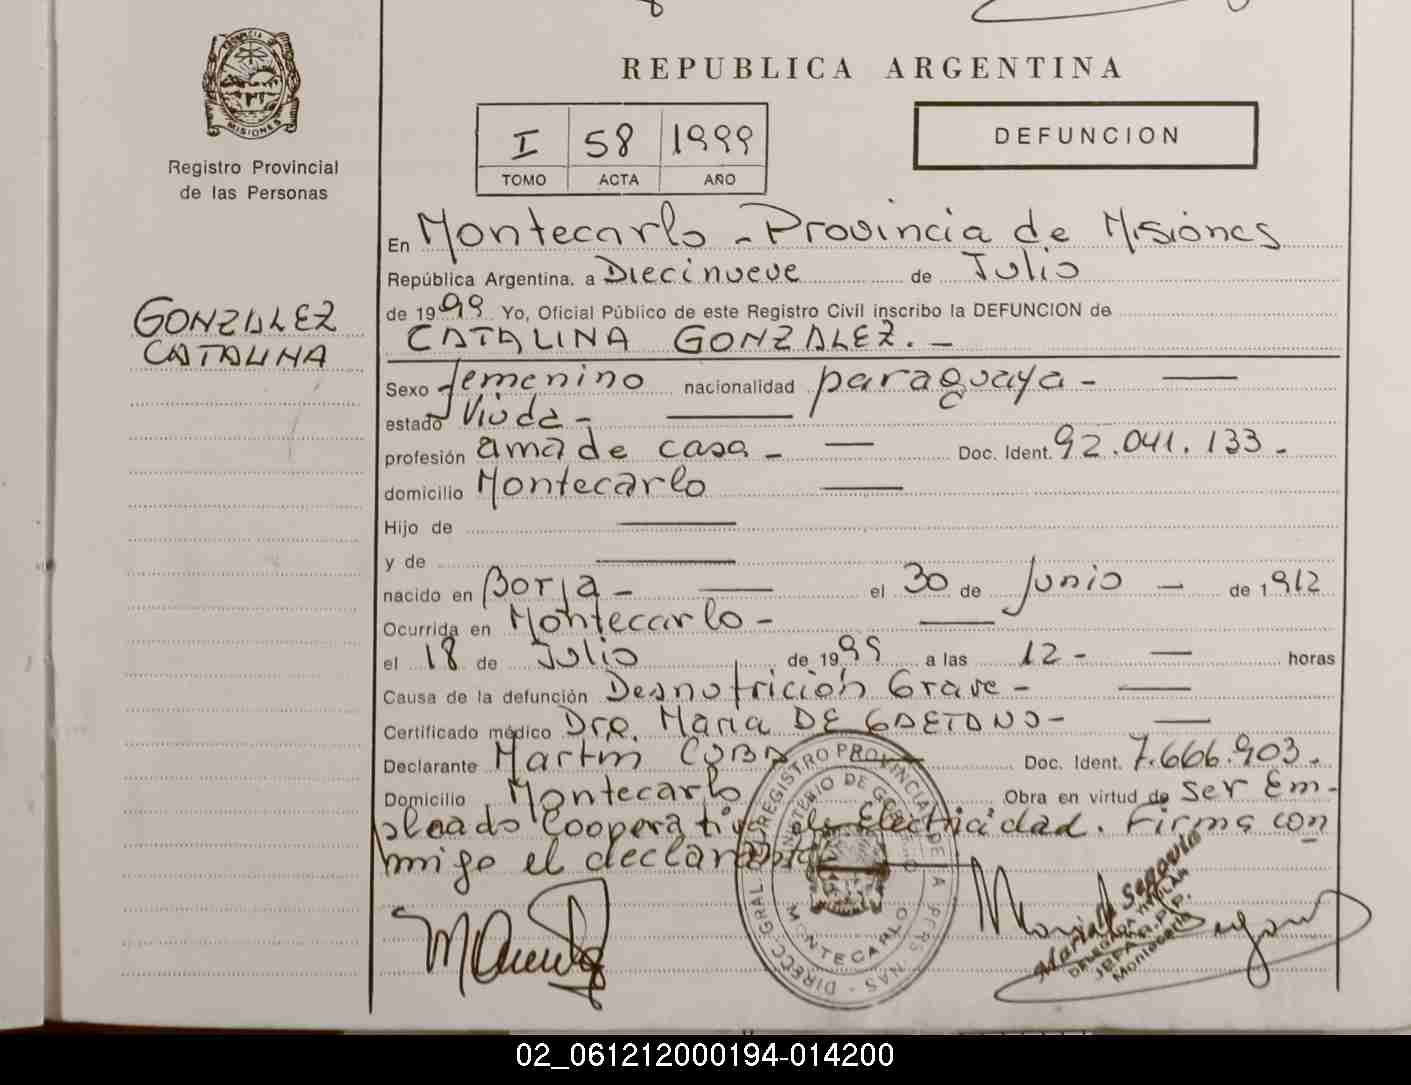 PROVINCIA DE
MISIONES
Registro Provincial
de las Personas
GONZALEZ
CATALINA
REPUBLICA ARGENTINA
I 58 1999
TOMO ACTA AÑO
DEFUNCION
En Montecarlo - Provincia de Misiones
República Argentina, a Diecinueve de Julio
de 1999 Yo, Oficial Público de este Registro Civil inscribo la DEFUNCION de
CATALINA GONZALEZ. -
Sexo femenino nacionalidad paraguaya -
estado Viuda -
profesión ama de casa - Doc. Ident. 92.041.133. -
domicilio Montecarlo
Hijo de
y de
nacido en Borja - el 30 de Junio - de 1912
Ocurrida en Montecarlo -
el 18 de Julio de 1999 a las 12 - horas
Causa de la defunción Desnutrición Grave -
Certificado médico Dra. Maria DE GAETANO -
Declarante Martin CUBA Doc. Ident. 7.666.903. -
Domicilio Montecarlo Obra en virtud de ser Em-
pleado Cooperativa de Electricidad. Firma con
migo el declarante
DIRECC. GRAL. REGISTRO PROVINCIAL DE LA PERS.
MINISTERIO DE GOBIERNO
MONTECARLO
DELEGADA TITULAR
02_061212000194-014200